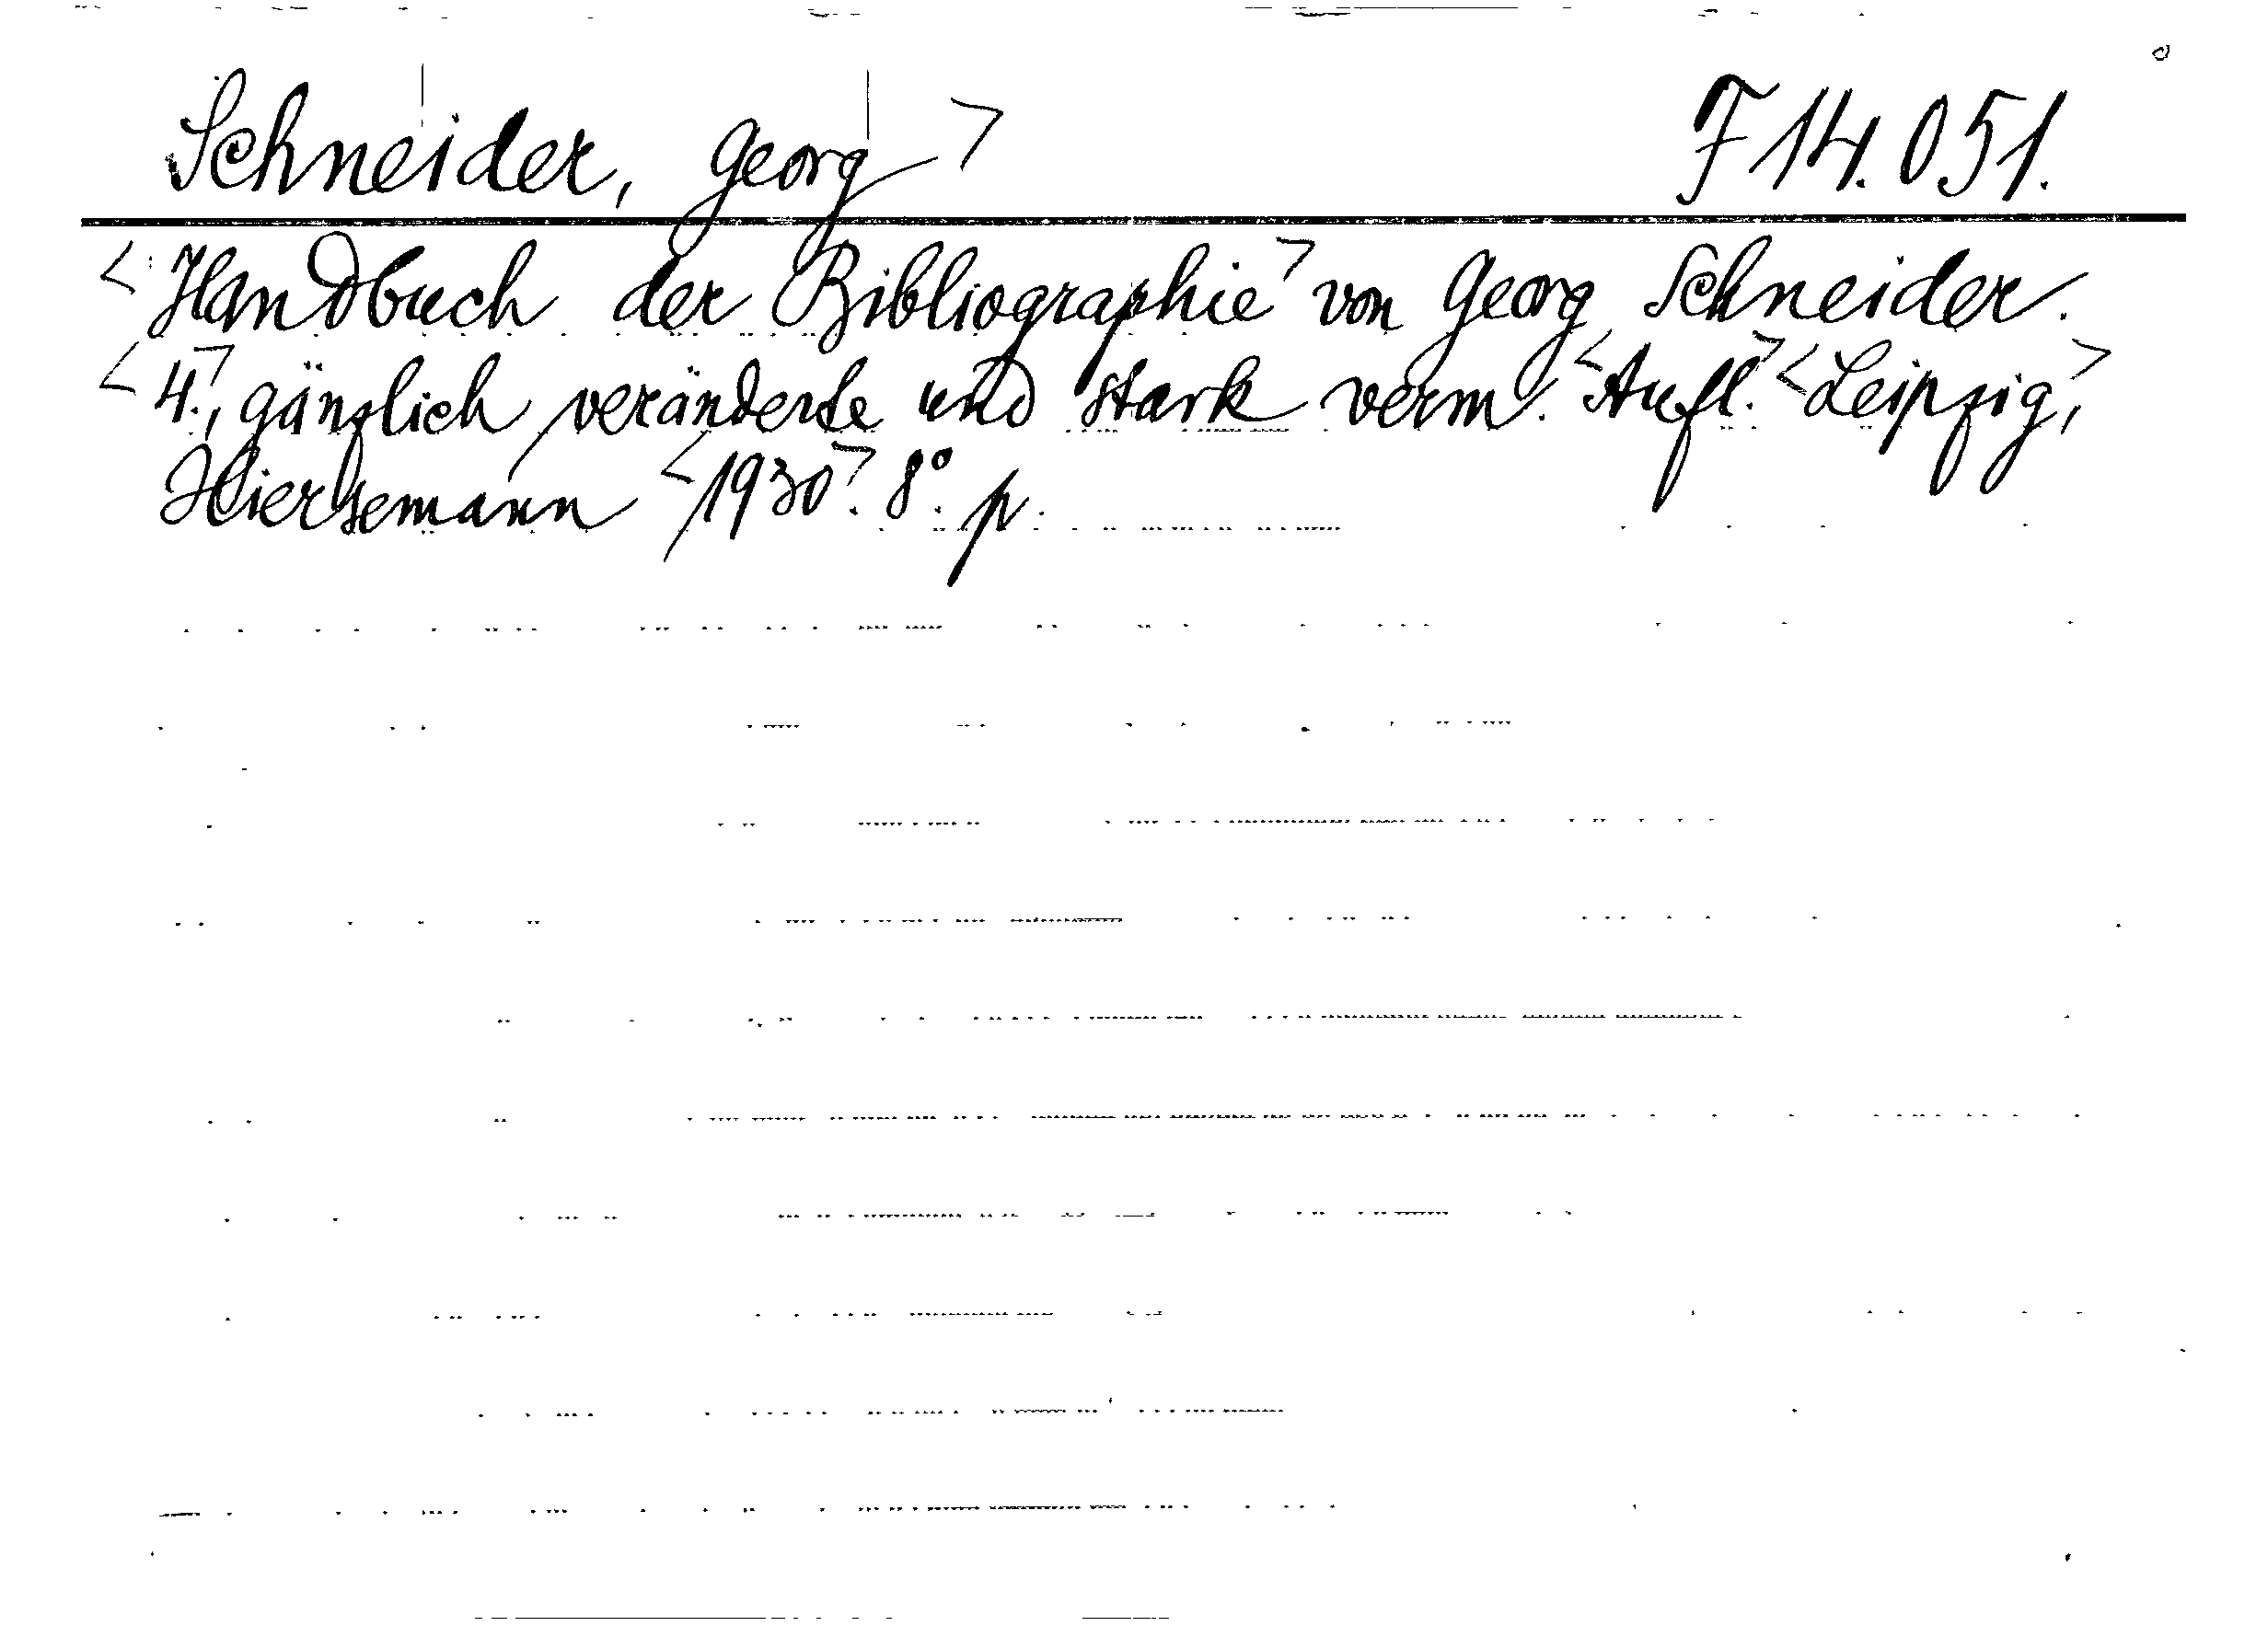 Schneider, Georg> F 14.051.
<Handbuch der Bibliographie> von Georg Schneider.
<4.>, gänzlich veränderte und stark verm. <Aufl.> <Leipzig,>
Hiersemann <1930>. 8°. p.